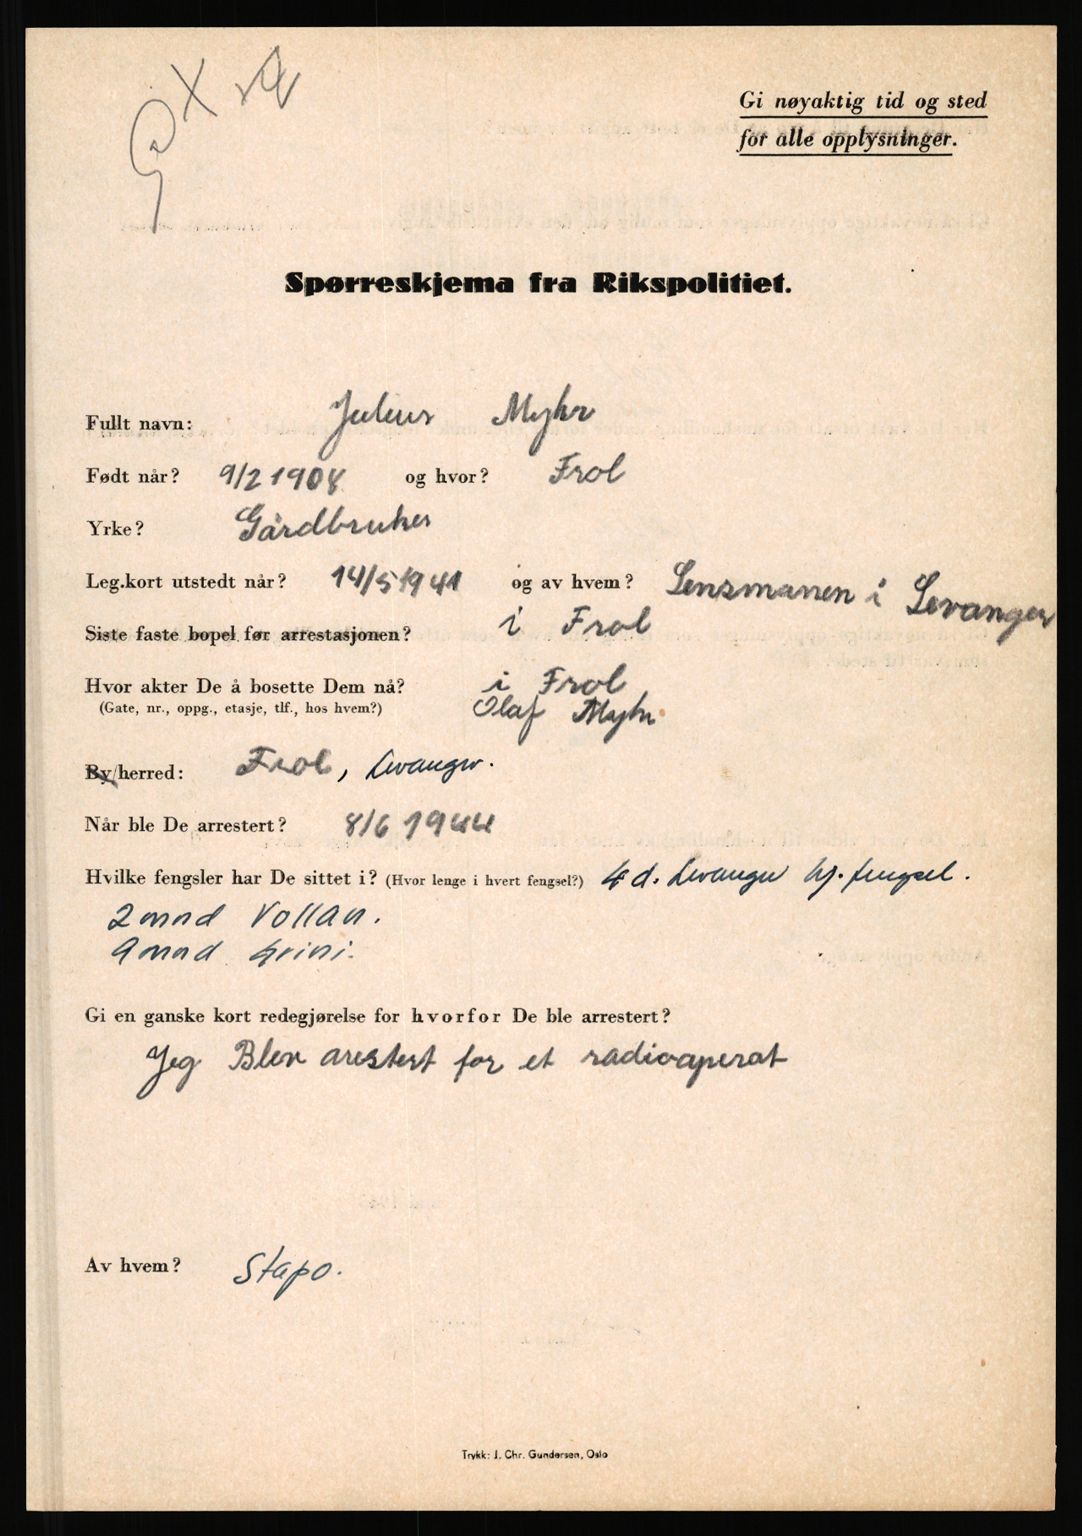 Gi nøyaktig tid og sted
for alle opplysninger.
Spørreskjema fra Rikspolitiet.
Fullt navn: Julius Myhr
Født når? 9/2 1908 og hvor? Frol
Yrke? Gårdbruker
Leg.kort utstedt når? 14/5 1941 og av hvem? Lensmanen i Levanger
Siste faste bopel før arrestasjonen? i Frol
Hvor akter De å bosette Dem nå? i Frol
(Gate, nr., oppg., etasje, tlf., hos hvem?) Olaf Myhr
By/herred: Frol, Levanger.
Når ble De arrestert? 8/6 1944
Hvilke fengsler har De sittet i? (Hvor lenge i hvert fengsel?) 4 d. Levanger hj. fengsel.
2 mnd Vollan.
9 mnd Grini.
Gi en ganske kort redegjørelse for hvorfor De ble arrestert?
Jeg Blev arestert for et radioaperat
Av hvem? Stapo.
Trykk: J. Chr. Gundersen, Oslo